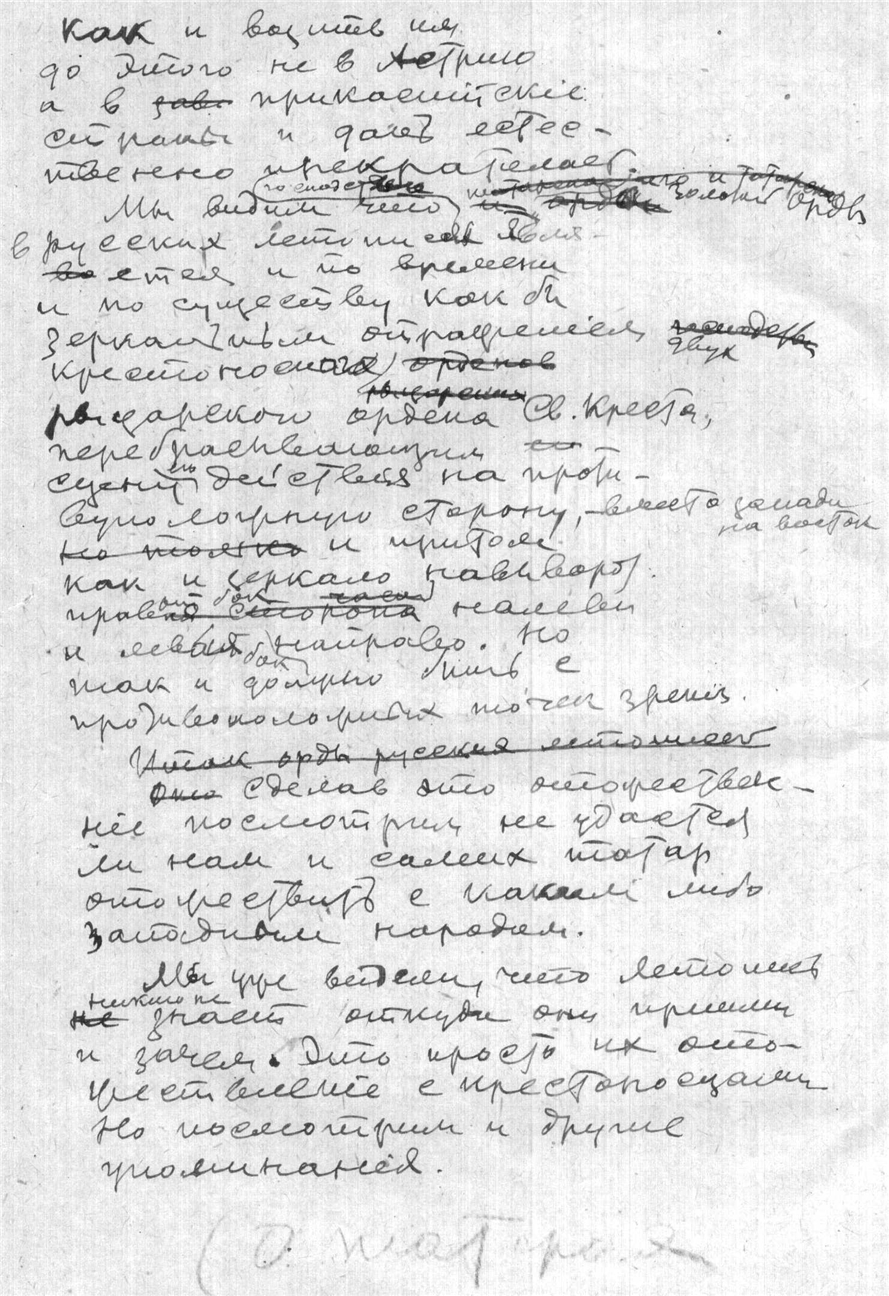 как и возить им
до этого не в Астрию
а в зав прикаспийскіе
страны и далъ естес-
твенно прекратилась.
господство татарское иго и татарско
Мы видим что и орды золотой орды
в русских летописях явля-
во ется и по времени
и по существу как бы
зеркальным отраженіем
двух
крестоноснаго орденов
рыцарских
рыцарского ордена Св. Креста,
перебрасывающим
сцену действія на проти-
вуположную сторону, вместо запада
на восток
но только и притом
как и зеркало навыворот
ый бок
правая сторона налеви
и левый направо. Но
бок
так и должно быть с
противоположных точек зрения.
Итак орды русския летописей
Оно Сделав это отожествле-
ніе посмотрим не удастся
ли нам и самих татар
отожествить с каким либо
западным народом.
Мы уже видели, что летопись
никто не
не знает откуда они пришли
и зачем. Это просто их ото-
жествленіе с крестоносцами
Но посмотрим и другие
упоминанія.
(О татарах